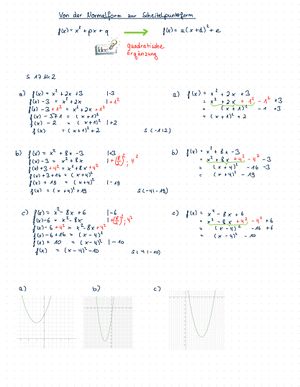 Von der Normalform zur Scheitelpunktform
f(x) = x² + px + q → f(x) = a(x+d)² + e
Quadratische
Ergänzung
S 17 Nr 2
a) f(x) = x² + 2x + 3 |-3
f(x) - 3 = x² + 2x | + 1²
f(x) - 3 + 1² = x² + 2x + 1²
f(x) - 2 = (x+1)² | + 2
f(x) = (x+1)² + 2
a) f(x) = x² + 2x + 3
= x² + 2x + 1² - 1² + 3
= (x+1)² -1 +3
= (x+1)² + 2
b) f(x) = x² + 8x - 3 |+3
f(x) + 3 = x² + 8x
f(x) + 3 + 4² = x² + 8x + 4²
f(x) + 3 + 16 = (x+4)²
f(x) + 19 = (x+4)² | - 19
f(x) = (x+4)² - 19
b) f(x) = x² + 8x - 3
= x² + 8x + 4² - 4² - 3
= (x+4)² - 16 - 3
= (x+4)² - 19
c) f(x) = x² - 8x + 6 |-6
f(x) - 6 = x² - 8x
f(x) - 6 + 4² = x² - 8x + 4²
f(x) - 6 + 16 = (x-4)²
f(x) + 10 = (x-4)² | - 10
f(x) = (x-4)² - 10
c) f(x) = x² - 8x + 6
= x² - 8x + 4² - 4² + 6
= (x-4)² - 16 + 6
= (x-4)² - 10
a) b) c)